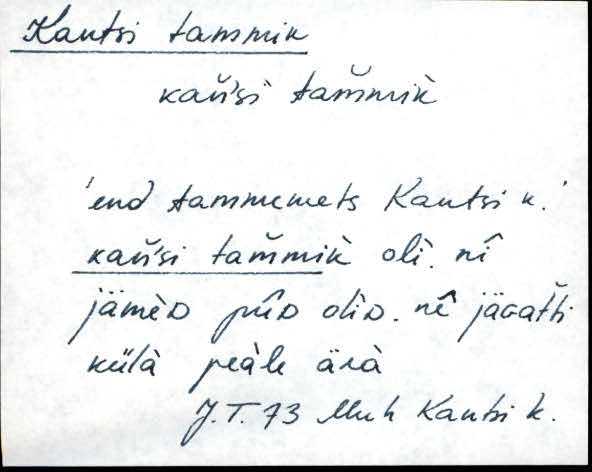 Kantsi tammik
kan̆'si tam̆mik̀
'end tammemets Kantsi k.'
kan̆'si tam̆mik̀ olì. nî
jämèD pûD olìD. nê jäGat̆ti
külà peàle ärà
J.T. 73 Muh Kantsi k.